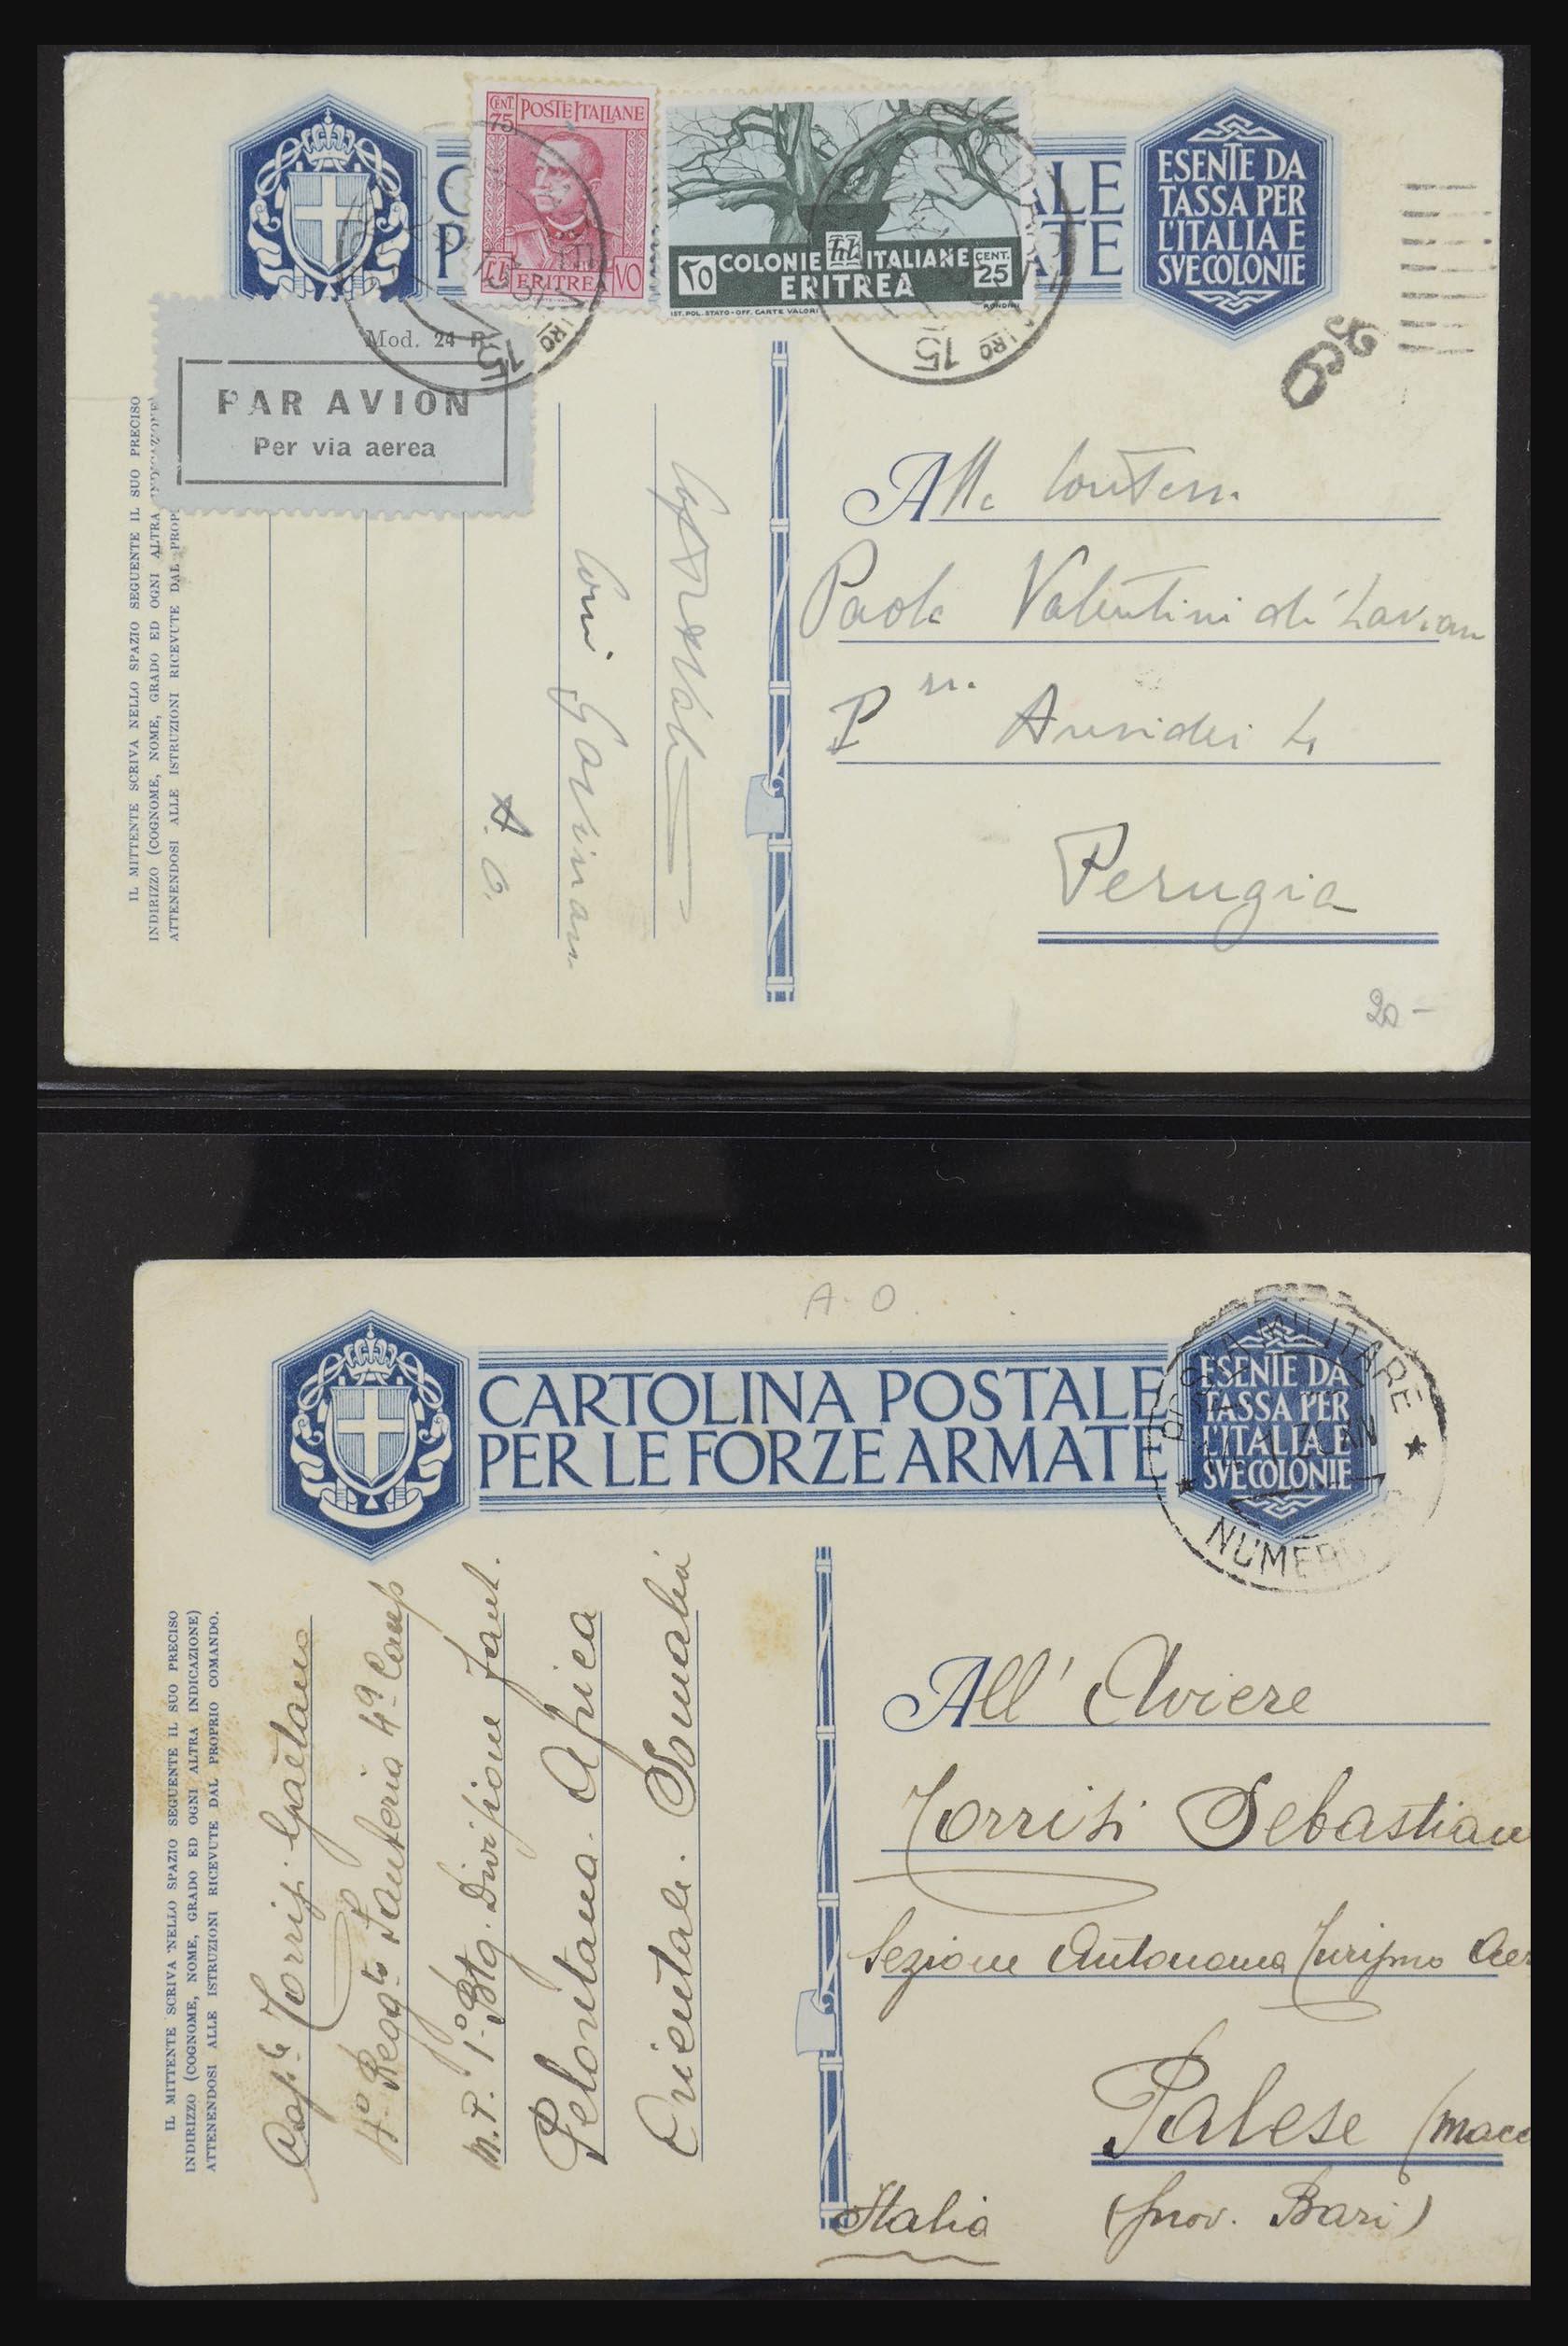 CENT. 75 POSTE ITALIANE
ERITREA
COLONIE ITALIANE CENT. 25
ERITREA
٢٥
IST. POL. STATO - OFF. CARTE VALORI
ALE
ATE
ESENTE DA
TASSA PER
L'ITALIA E
SVE COLONIE
Mod. 24
PAR AVION
Per via aerea
15
IL MITTENTE SCRIVA NELLO SPAZIO SEGUENTE IL SUO PRECISO
INDIRIZZO (COGNOME, NOME, GRADO ED OGNI ALTRA INDICAZIONE)
ATTENENDOSI ALLE ISTRUZIONI RICEVUTE DAL PROP
A. O.
Alla
Valentini di
4
Perugia
20 -
A. O.
CARTOLINA POSTALE
PER LE FORZE ARMATE
ESENTE DA
TASSA PER
L'ITALIA E
SVE COLONIE
POSTA MILITARE
NUMERO
IL MITTENTE SCRIVA NELLO SPAZIO SEGUENTE IL SUO PRECISO
INDIRIZZO (COGNOME, NOME, GRADO ED OGNI ALTRA INDICAZIONE)
ATTENENDOSI ALLE ISTRUZIONI RICEVUTE DAL PROPRIO COMANDO.
Cap.le Torrisi Gaetano
4º Regg.to Fanteria 4ª Comp
M. P. 1º Btg. Divisione Fant.
Peloritana. Africa
Orientale. Somalia
All' Aviere
Torrisi Sebastian
Sezione Autonoma Turismo Aer
Palese (Macc
Italia (prov. Bari)